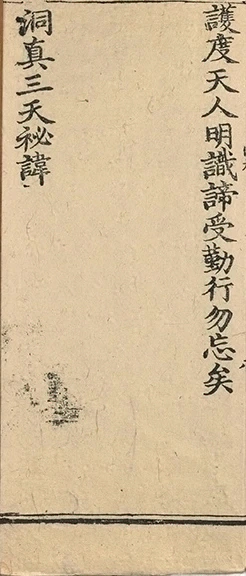 護度天人明識諦受勤行勿忘矣
洞真三天祕諱